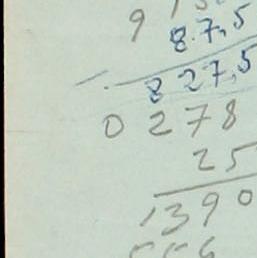 87,5
827,5
0278
25
1390
556